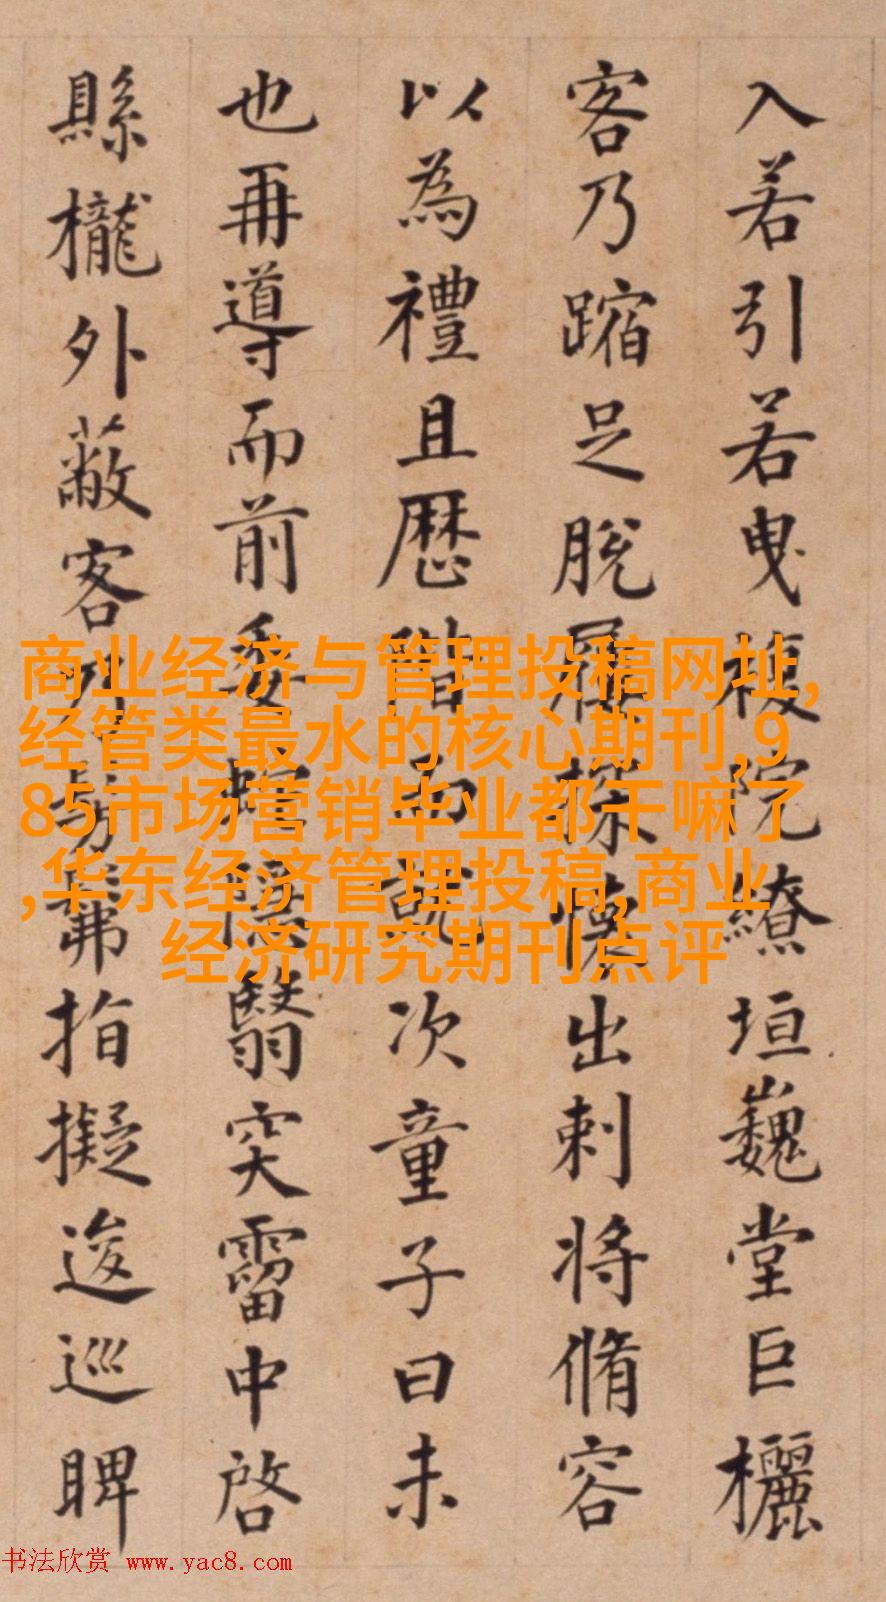 入若引若曳複院繚垣巍堂巨欐
客乃蹜足脫屨探懷出刺將脩容
以為禮且歷階而就次童子曰未
也再導而前委蛇隱翳突霤中啓
縣櫳外蔽客乃髣髴指擬逡巡睥
商业经济与管理投稿网址,
经管类最水的核心期刊,9
85市场营销毕业都干嘛了
,华东经济管理投稿,商业
经济研究期刊点评
书法欣赏 www.yac8.com